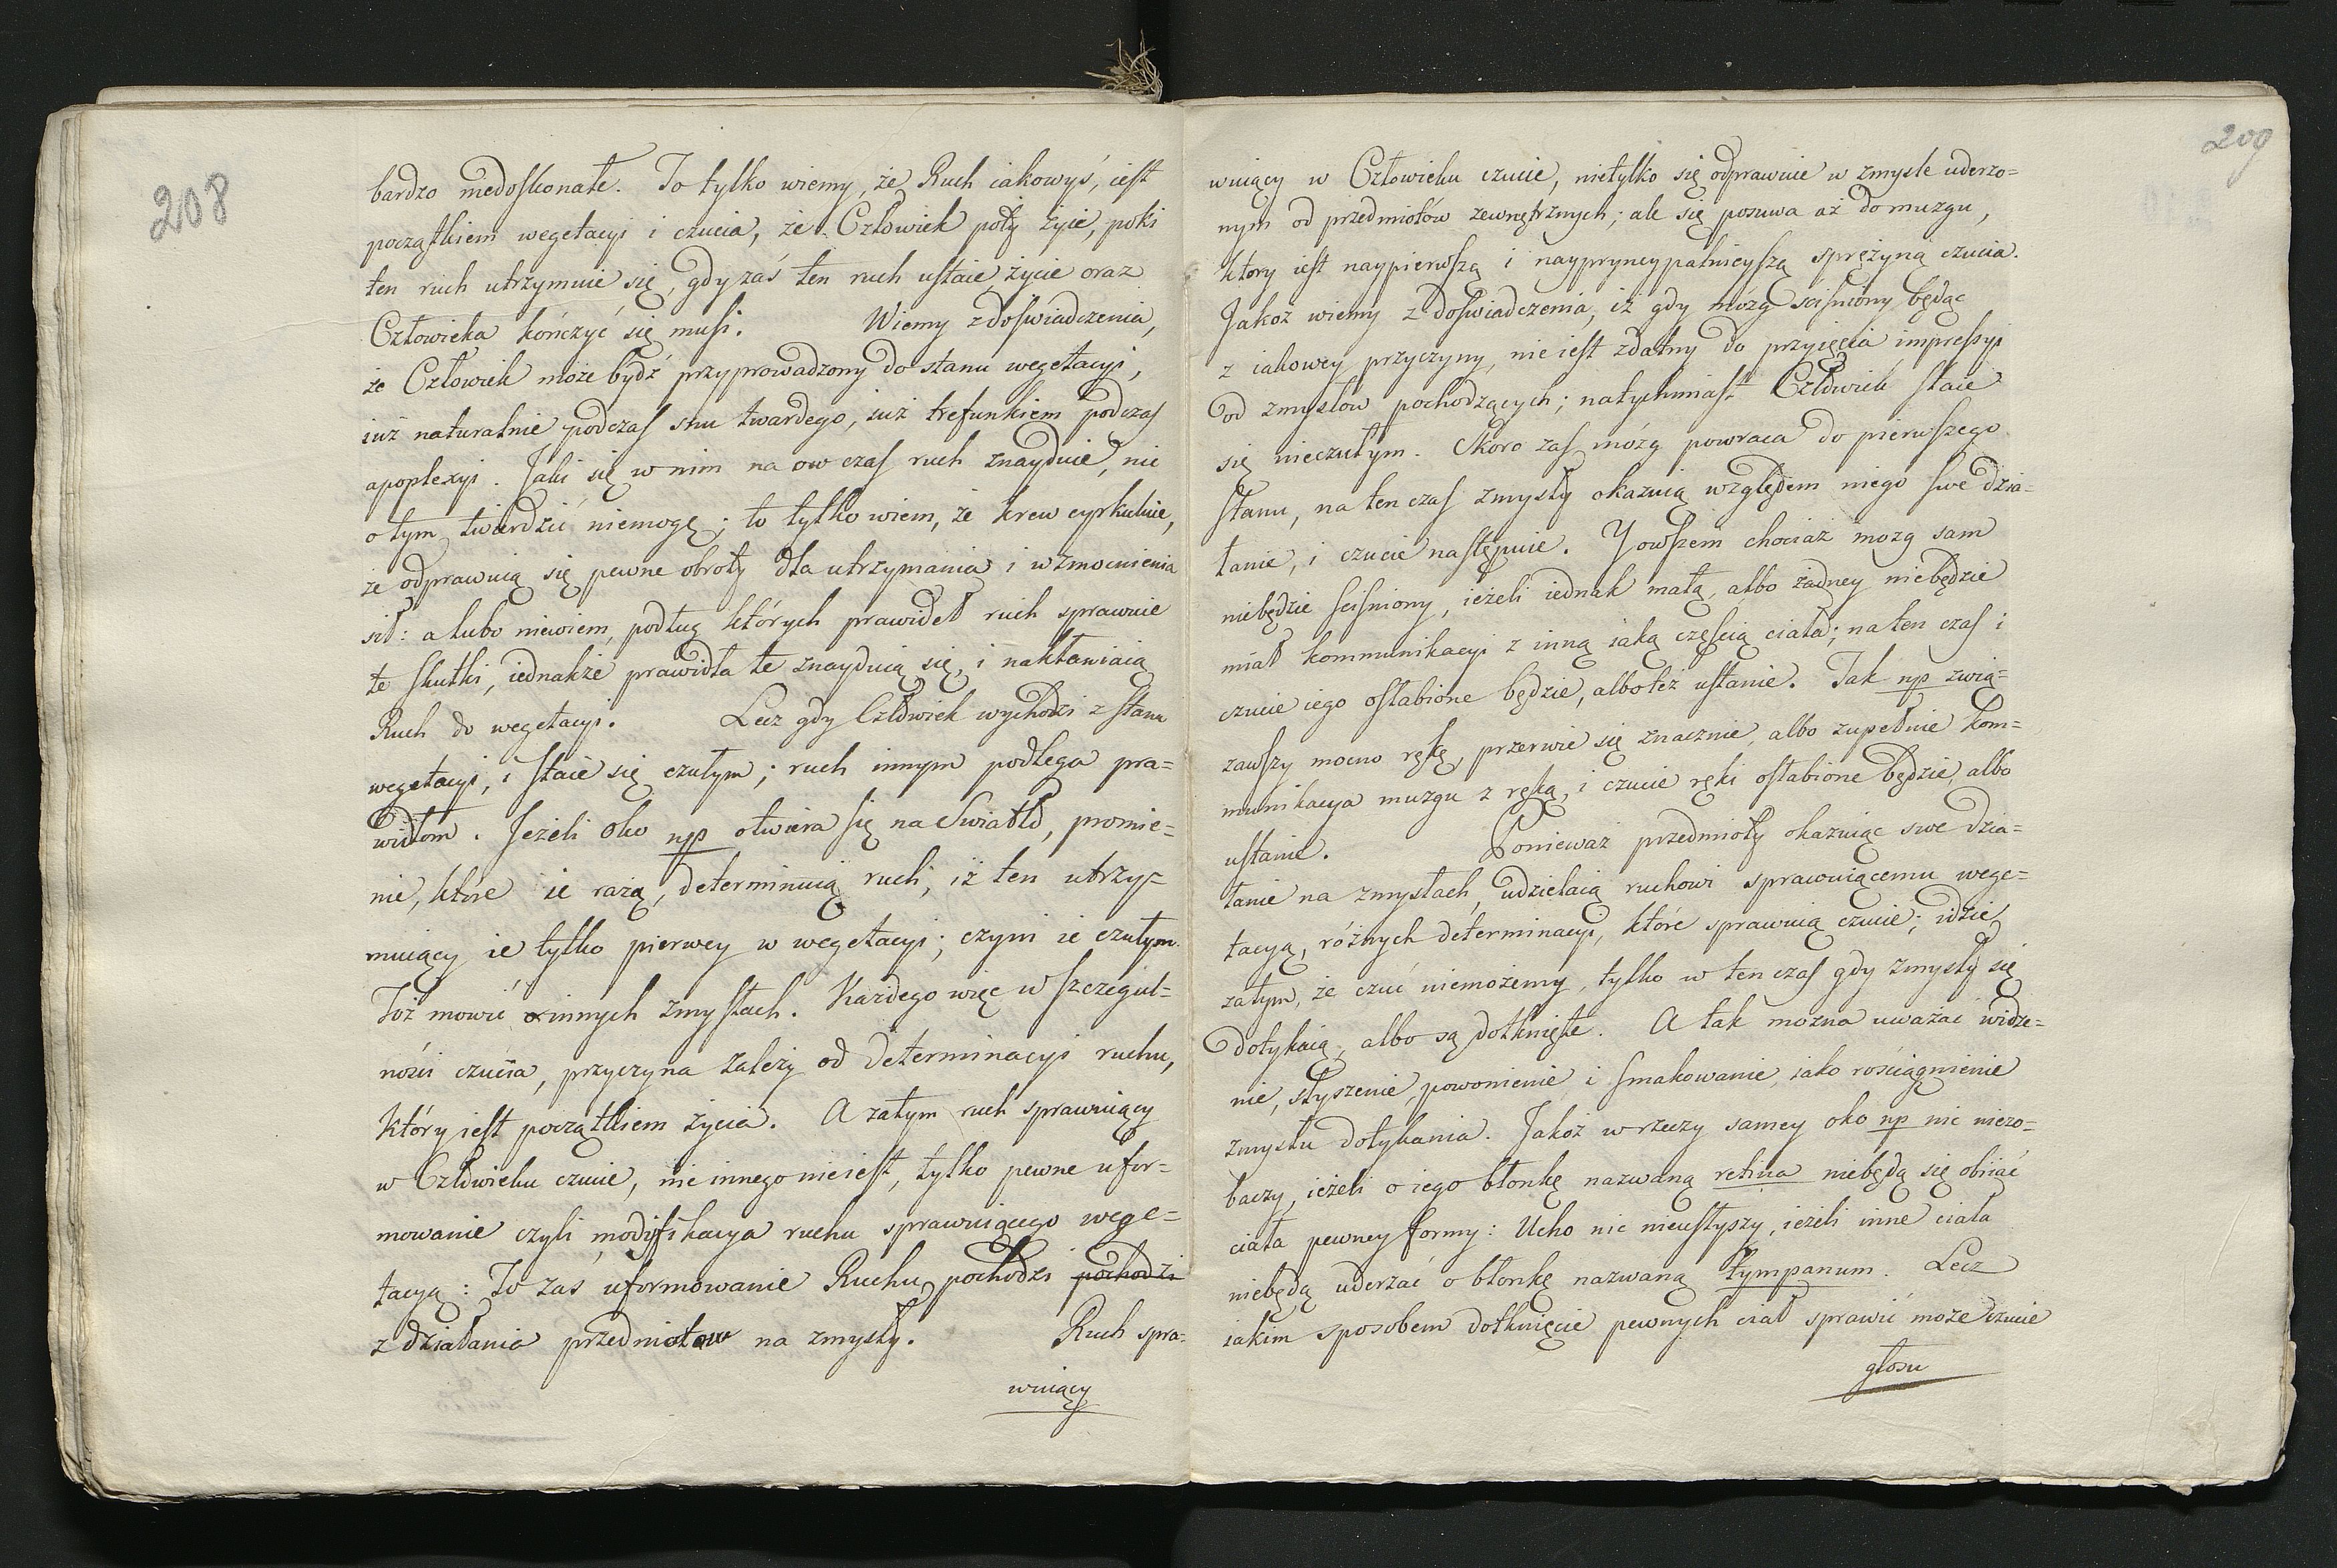 208
bardzo niedoskonałe. To tylko wiemy, że Ruch iakowyś, iest
początkiem wegetacyi i czucia, że Człowiek poty żyie, poki
ten ruch utrzymuie się, gdy zaś ten ruch ustaie, życie oraz
Człowieka kończyć się musi. Wiemy z doświadczenia,
że Człowiek może bydź przyprowadzony do stanu wegetacyi,
iuż naturalnie podczas snu twardego, iuż trefunkiem podczas
apoplexyi. Jaki się w nim na ow czas ruch znayduie, nic
o tym twierdzić niemogę; to tylko wiem, że krew cyrkuluie,
że odprawuią się pewne obroty dla utrzymania i wzmocnienia
sił: a lubo niewiem, podług których prawideł ruch sprawuie
te skutki, iednakże prawidła te znayduią się, i nakłaniaią
Ruch do wegetacyi. Lecz gdy Człowiek wychodzi z stanu
wegetacyi, i staie się czułym; ruch innym podlega pra=
widłom. Jeżeli oko np otwiera się na Swiatło, promie=
nie, które ie rażą, determinuią ruch, iż ten utrzy=
muiący ie tylko pierwey w wegetacyi; czyni ie czułym.
Toż mowić o innych zmysłach. Każdego więc w szczegul=
ności czucia, przyczyna zależy od determinacyi ruchu,
który iest początkiem życia. A zatym ruch sprawuiący
w Człowieku czucie, nic innego nieiest, tylko pewne ufor=
mowanie czyli modyfikacya ruchu sprawuiącego wege=
tacyą: To zaś uformowanie Ruchu, pochodzi pochodzi
z działania przedmiotow na zmysły. Ruch spra=
wuiący
209
wuiący w Człowieku czucie, nietylko się odprawuie w zmyśle uderzo=
nym od przedmiotów zewnętrznych; ale się posuwa aż do muzgu,
ktory iest naypierwszą i naypryncypalnieyszą sprężyną czucia.
Jakoż wiemy z doświadczenia, iż gdy mózg sciśniony będąc
z iakowey przyczyny, nie iest zdatny do przyięcia impressyi
od zmysłow pochodzących; natychmiast Człowiek staie
się nieczułym. Skoro zaś mózg powraca do pierwszego
stanu, na ten czas zmysły okazuią względem niego swe dzia=
łanie, i czucie następuie. Y owszem chociaż mozg sam
niebędzie sciśniony, ieżeli iednak małą, albo żadney niebędzie
miał kommunikacyi z inną iaką częścią ciała; na ten czas i
czucie iego osłabione będzie, albo też ustanie. Tak np zwią=
zawszy mocno rękę, przerwie się znacznie, albo zupełnie kom=
munikacya muzgu z ręką, i czucie ręki osłabione będzie, albo
ustanie. Ponieważ przedmioty okazuiąc swe dzia=
łanie na zmysłach, udzielaią ruchowi sprawuiącemu wege=
tacyą, różnych determinacyi, które sprawuią czucie; idzie
zatym, że czuć niemożemy, tylko w ten czas gdy zmysły się
dotykaią, albo są dotknięte. A tak można uważać widze=
nie, słyszenie, powonienie i smakowanie, iako rościągnienie
zmysłu dotykania. Jakoż w rzeczy samey oko np nic niezo=
baczy, ieżeli o iego błonkę nazwaną retina niebędą się obiiać
ciała pewney formy: Ucho nic nieusłyszy, ieżeli inne ciała
niebędą uderzać o błonkę nazwaną tympanum. Lecz
iakim sposobem dotknięcie pewnych ciał sprawić może czucie
głosu